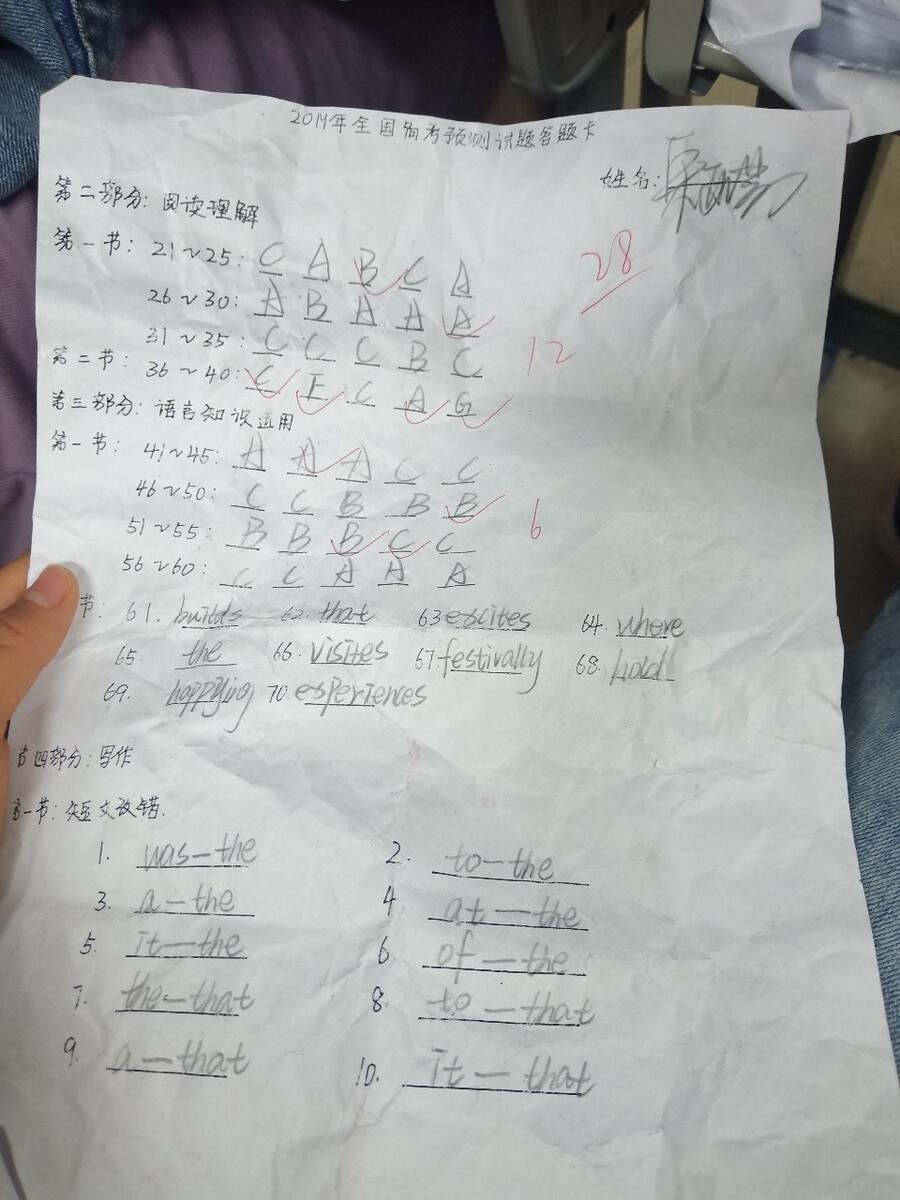 2019年全国高考预测试题答题卡
姓名:
第二部分: 阅读理解
28
第一节: 21~25: C A B C A
26~30: A B A A A
31~35: C C C B C
12
第二节: 36~40: C E C A G
第三部分: 语言知识运用
第一节: 41~45: A A A C C
46~50: C C B B B
6
51~55: B B B C C
56~60: C C A A A
节: 61. builds 62. that 63 escites 64. where
65. the 66. visites 67. festivally 68. hold
69. happying 70. esperiences
第四部分: 写作
第一节: 短文改错.
1. was—the 2. to—the
3. a—the 4 at—the
5. it—the 6 of—the
7. the—that 8. to—that
9 a—that 10. it—that